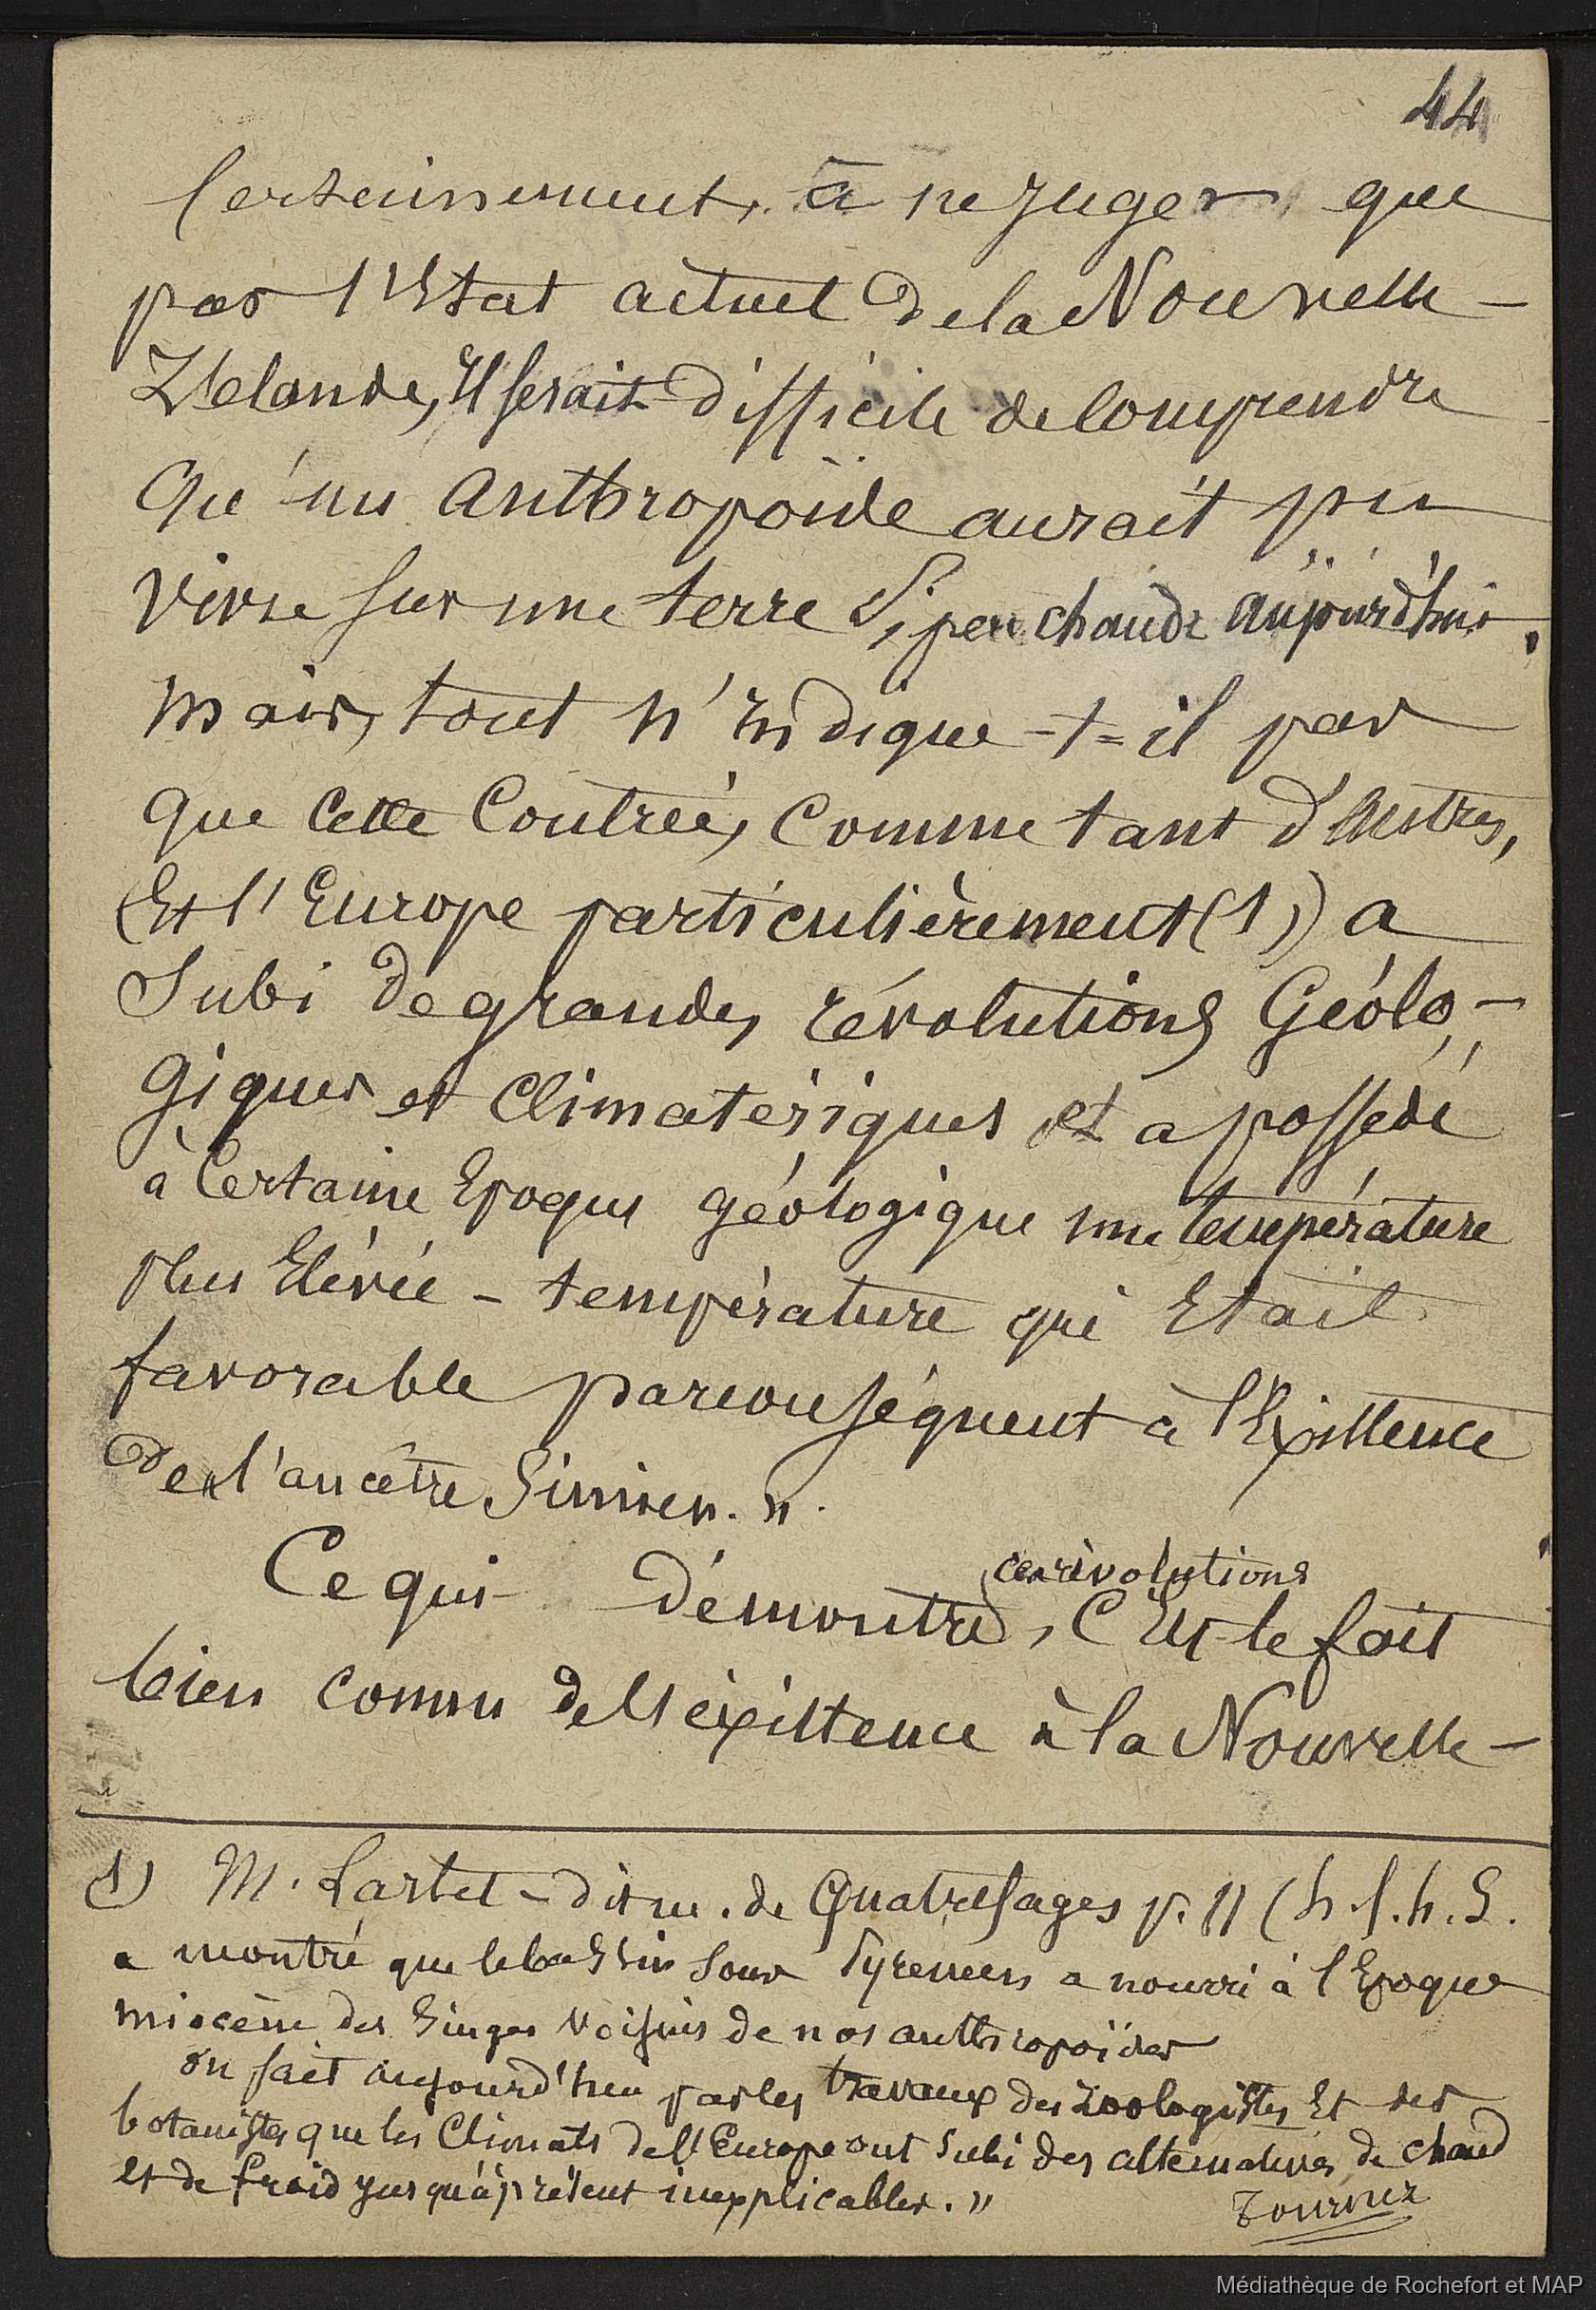 44
Certainement, à ne juger que
par l'Etat actuel de la Nouvelle-
Zélande, Il serait difficile de comprendre
Qu'un Anthropoïde aurait pu
vivre sur une terre si peu chaude aujourd'hui.
mais, tout n'indique-t-il pas
que cette Contrée, Comme tant d'Autres,
(Et l'Europe particulièrement (1)) a
Subi de grandes révolutions Géolo-
giques et Climatériques et a possédé
à Certaine Epoque géologique une température
plus Elévée - température qui Etait
favorable par conséquent à l'Existence
de l'ancêtre Simien. "
ces révolutions
Ce qui démontre, C'Est le fait
bien connu de l'éxistence à la Nouvelle-
(1) M. Lartet - dit m. de Quatrefages p. 11 (h. f. h. S.
a montré que le bassin Sous Pyreneen a nourri à l'Epoque
miocène des Singes Voisins de nos anthropoïdes
on sait aujourd'hui par les travaux des Zoologistes Et des
botanistes que les Climats de l'Europe ont Subi des alternatives de chaud
Et de froid jusqu'à présent inexplicables. "
Tournez
Médiathèque de Rochefort et MAP